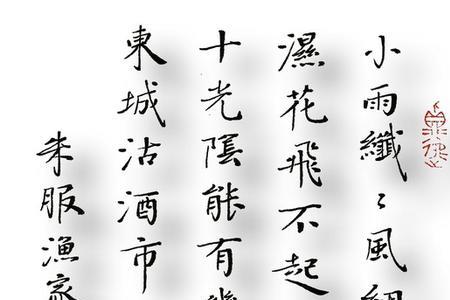 小雨纖〻風細
濕花飛不起
十光陰能有幾
東城沽酒市
朱服漁家